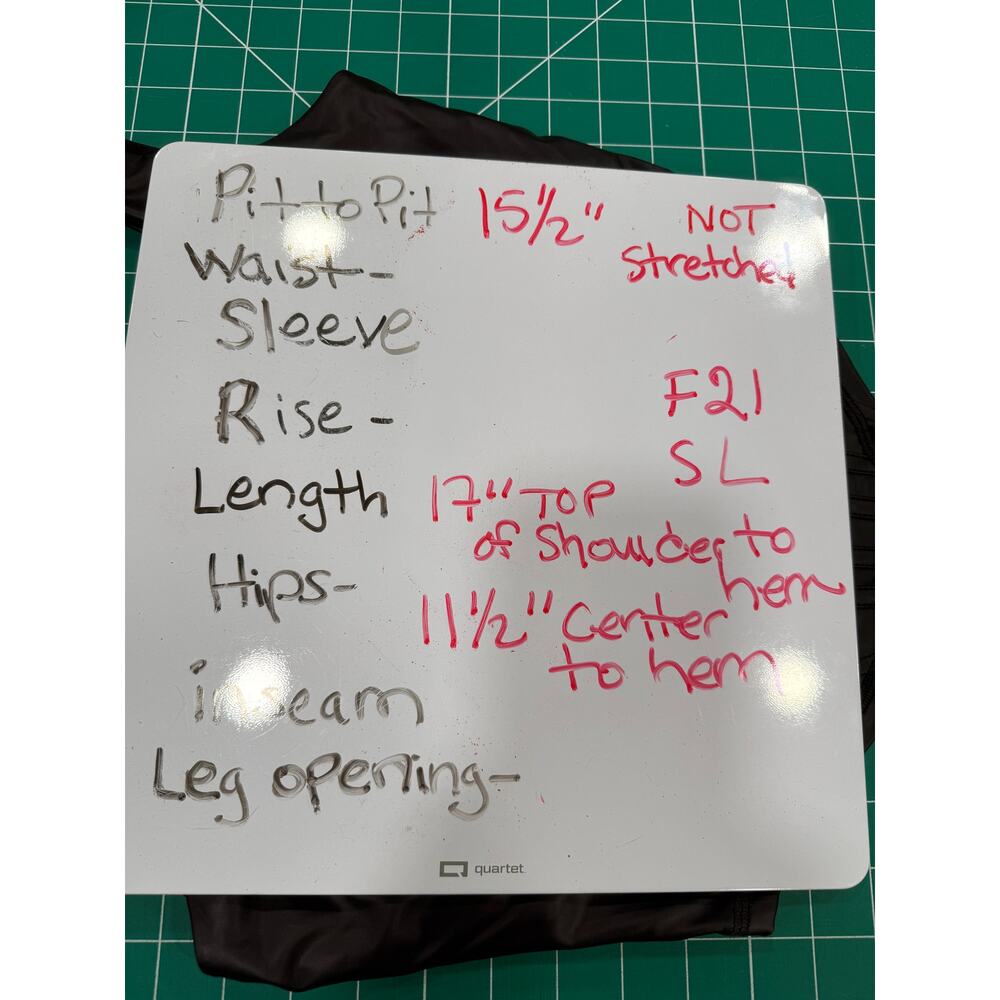 Pit to Pit 15½" NOT
Waist- Stretched
Sleeve
Rise- F21
SL
Length 17" TOP
of Shoulder to
hem
Hips- 11½" Center
to hem
inseam
Leg opening-
quartet